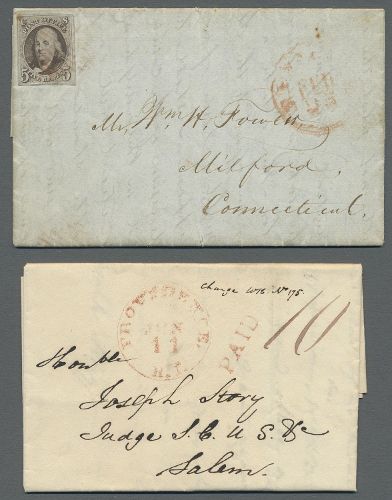 POST OFFICE
5 5
Mr. Wm H. Fowler
Milford,
Connecticut.
Charge WTB. No 175
PROVIDENCE
JUN
11
R.I.
PAID
10
Honble
Joseph Story
Judge S. C. U S. &c
Salem.